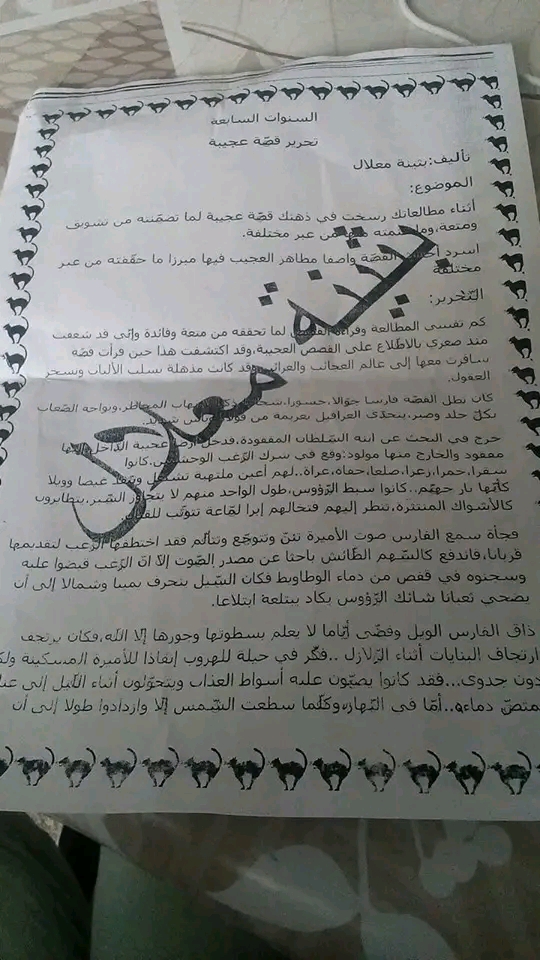 السنوات السابعة
تحرير قصّة عجيبة
تأليف:بثينة معلال
الموضوع:
أثناء مطالعاتك رسخت في ذهنك قصّة عجيبة لما تضمّنته من تشويق
ومتعة,وما من عبر مختلفة.
اسرد القصّة واصفا مظاهر العجيب فيها مبرزا ما حقّقته من عبر
مختلفة
التّحرير:
كم تفتنني المطالعة وقراءة القصص لما تحققه من متعة وفائدة وإنّي قد شغفت
منذ صغري بالاطّلاع على القصص العجيبة,وقد اكتشفت هذا حين قرأت قصّة
سافرت معها إلى عالم العجائب والغرائب وقد كانت مذهلة بسلب الألباب وسحر
العقول.
كان بطل القصّة فارسا جوّالا,جسورا,شجاعا المخاطر,ويواجه الصّعاب
بكلّ جلد وصبر,يتحدّى العراقيل بعزيمة من فولاذ
خرج في البحث عن ابنة السّلطان المفقودة,فدخل أرض عجيبة الدّاخل إليها
مفقود والخارج منها مولود:وقع في شرك الزّغب الوحشيّين,كانوا
سقرا,حمرا,زعرا,صلعا,حفاة,عراة..لهم أعين ملتهبة تشتعل غيضا وويلا
كأنّها نار جهنّم..كانوا سبط الرّؤوس,طول الواحد منهم لا يتجاوز الشّبر,يتطايرون
كالأشواك المنتثرة,تنظر إليهم فتخالهم إبرا لمّاعة تتوثّب للقتال
فجأة سمع الفارس صوت الأميرة تئنّ وتتوجّع وتتألّم فقد اختطفها الزّغب لتقديمها
قربانا,فاندفع كالسّهم الطّائش باحثا عن مصدر الصّوت إلّا أنّ الزّغب قبضوا عليه
وسجنوه في قفص من دماء الوطاويط فكان السّيل ينجرف يمينا وشمالا إلى أن
يضحي ثعبانا شائك الرّؤوس يكاد يبتلعه ابتلاعا.
ذاق الفارس الويل وقضّى أيّاما لا يعلم بسطوتها وجورها إلّا الله,فكان يرتجف
ارتجاف البنايات أثناء الزّلازل ..فكّر في حيلة للهروب إنقاذا للأميرة المسكينة ولكن
دون جدوى...فقد كانوا يصبّون عليه أسواط العذاب ويتحوّلون أثناء اللّيل إلى
تمتصّ دماءه..أمّا في النّهار,وكلّما سطعت الشّمس إلّا وازدادوا طولا إلى أن
بثينة معلال